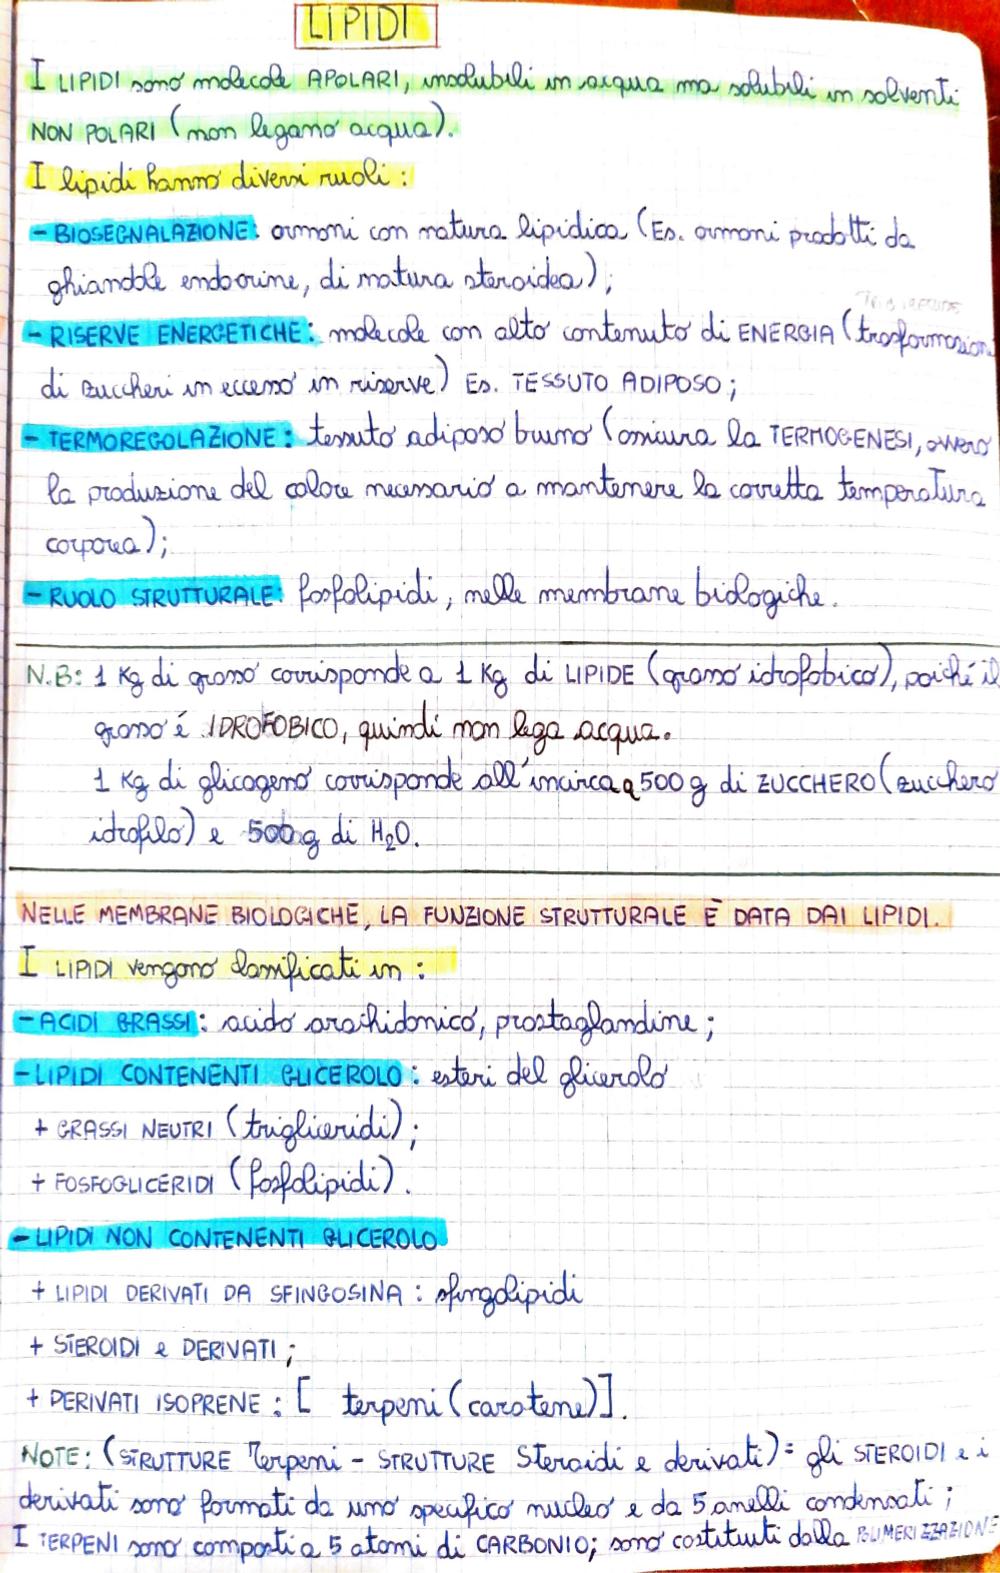 LIPIDI
I LIPIDI sono molecole APOLARI, insolubili in acqua ma solubili in solventi
NON POLARI (non legano acqua).
I lipidi hanno diversi ruoli :
- BIOSEGNALAZIONE: ormoni con natura lipidica (Es. ormoni prodotti da
ghiandole endocrine, di natura steroidea);
- RISERVE ENERGETICHE: molecole con alto contenuto di ENERGIA (trasformazion
di zuccheri in eccesso in riserve) Es. TESSUTO ADIPOSO;
- TERMOREGOLAZIONE: tessuto adiposo bruno (assicura la TERMOGENESI, ovvero
la produzione del calore necessario a mantenere la corretta temperatura
corporea);
- RUOLO STRUTTURALE: fosfolipidi, nelle membrane biologiche.
N.B: 1 Kg di grasso corrisponde a 1 Kg di LIPIDE (grasso idrofobico), poiché il
grasso é IDROFOBICO, quindi non lega acqua.
1 Kg di glicogeno corrisponde all'incirca a 500 g di ZUCCHERO (zucchero
idrofilo) e 500 g di H₂O.
NELLE MEMBRANE BIOLOGICHE, LA FUNZIONE STRUTTURALE È DATA DAI LIPIDI.
I LIPIDI vengono classificati in :
- ACIDI GRASSI: acido arachidonico, prostaglandine;
- LIPIDI CONTENENTI GLICEROLO: esteri del glicerolo
+ GRASSI NEUTRI (trigliceridi);
+ FOSFOGLICERIDI (fosfolipidi).
- LIPIDI NON CONTENENTI GLICEROLO
+ LIPIDI DERIVATI DA SFINGOSINA : sfingolipidi
+ STEROIDI e DERIVATI;
+ DERIVATI ISOPRENE : [ terpeni (carotene)].
NOTE: (STRUTTURE Terpeni - STRUTTURE Steroidi e derivati) = gli STEROIDI e i
derivati sono formati da uno specifico nucleo e da 5 anelli condensati;
I TERPENI sono composti a 5 atomi di CARBONIO; sono costituiti dalla POLIMERIZZAZIONE